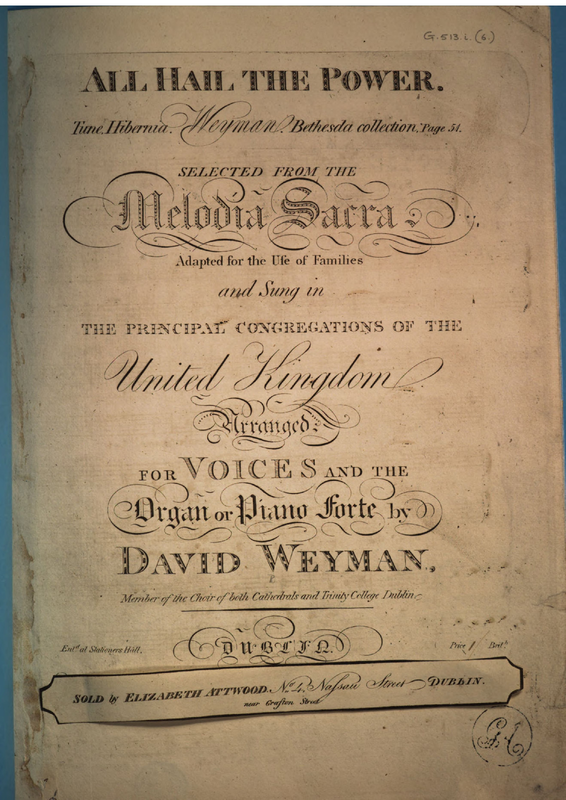 G.513.i.(6.)
ALL HAIL THE POWER.
Tune, Hibernia. Weyman. Bethesda collection, Page 51.
SELECTED FROM THE
Melodia Sacra
Adapted for the Use of Families
and Sung in
THE PRINCIPAL CONGREGATIONS OF THE
United Kingdom
Arranged
FOR VOICES AND THE
Organ or Piano Forte, by
DAVID WEYMAN,
Member of the Choir of both Cathedrals and Trinity College Dublin.
DUBLIN.
Entd. at Stationers Hall,
Price 1/ Brith.
SOLD by ELIZABETH ATTWOOD. No. 4, Nassau Street DUBLIN.
near Grafton Street